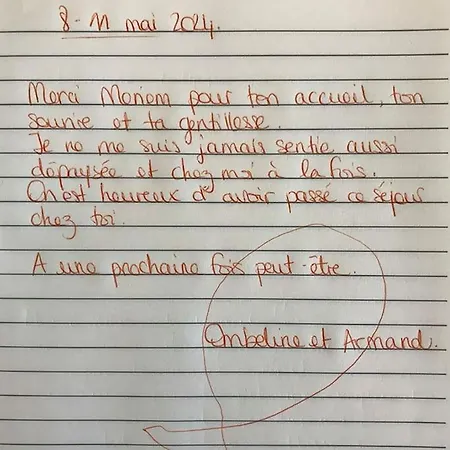 8-11 mai 2024.
Merci Moriem pour ton accueil, ton
sourire et ta gentillesse.
Je ne me suis jamais sentie aussi
dépaysée et chez moi à la fois.
On est heureux d'avoir passé ce séjour
chez toi.
A une prochaine fois peut-être.
Ombeline et Armand.